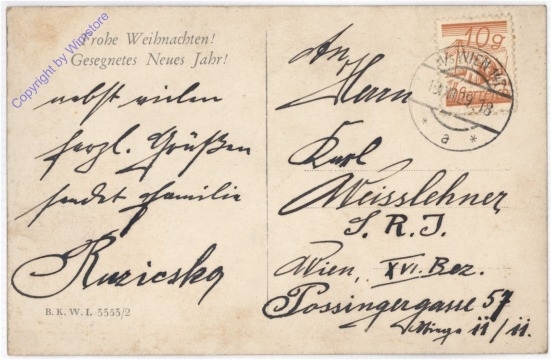 Copyright by Winstore
Frohe Weihnachten!
Gesegnetes Neues Jahr!
nebst vielen
herzl. Grüßen
sendet Familie
Ruzicska
B. K. W. I. 3353/2
10g
WIEN
* a *
An
Herrn
Karl
Weisslehner
S. R. I.
Wien, XVI. Bez.
Possingergasse 57
II / II.